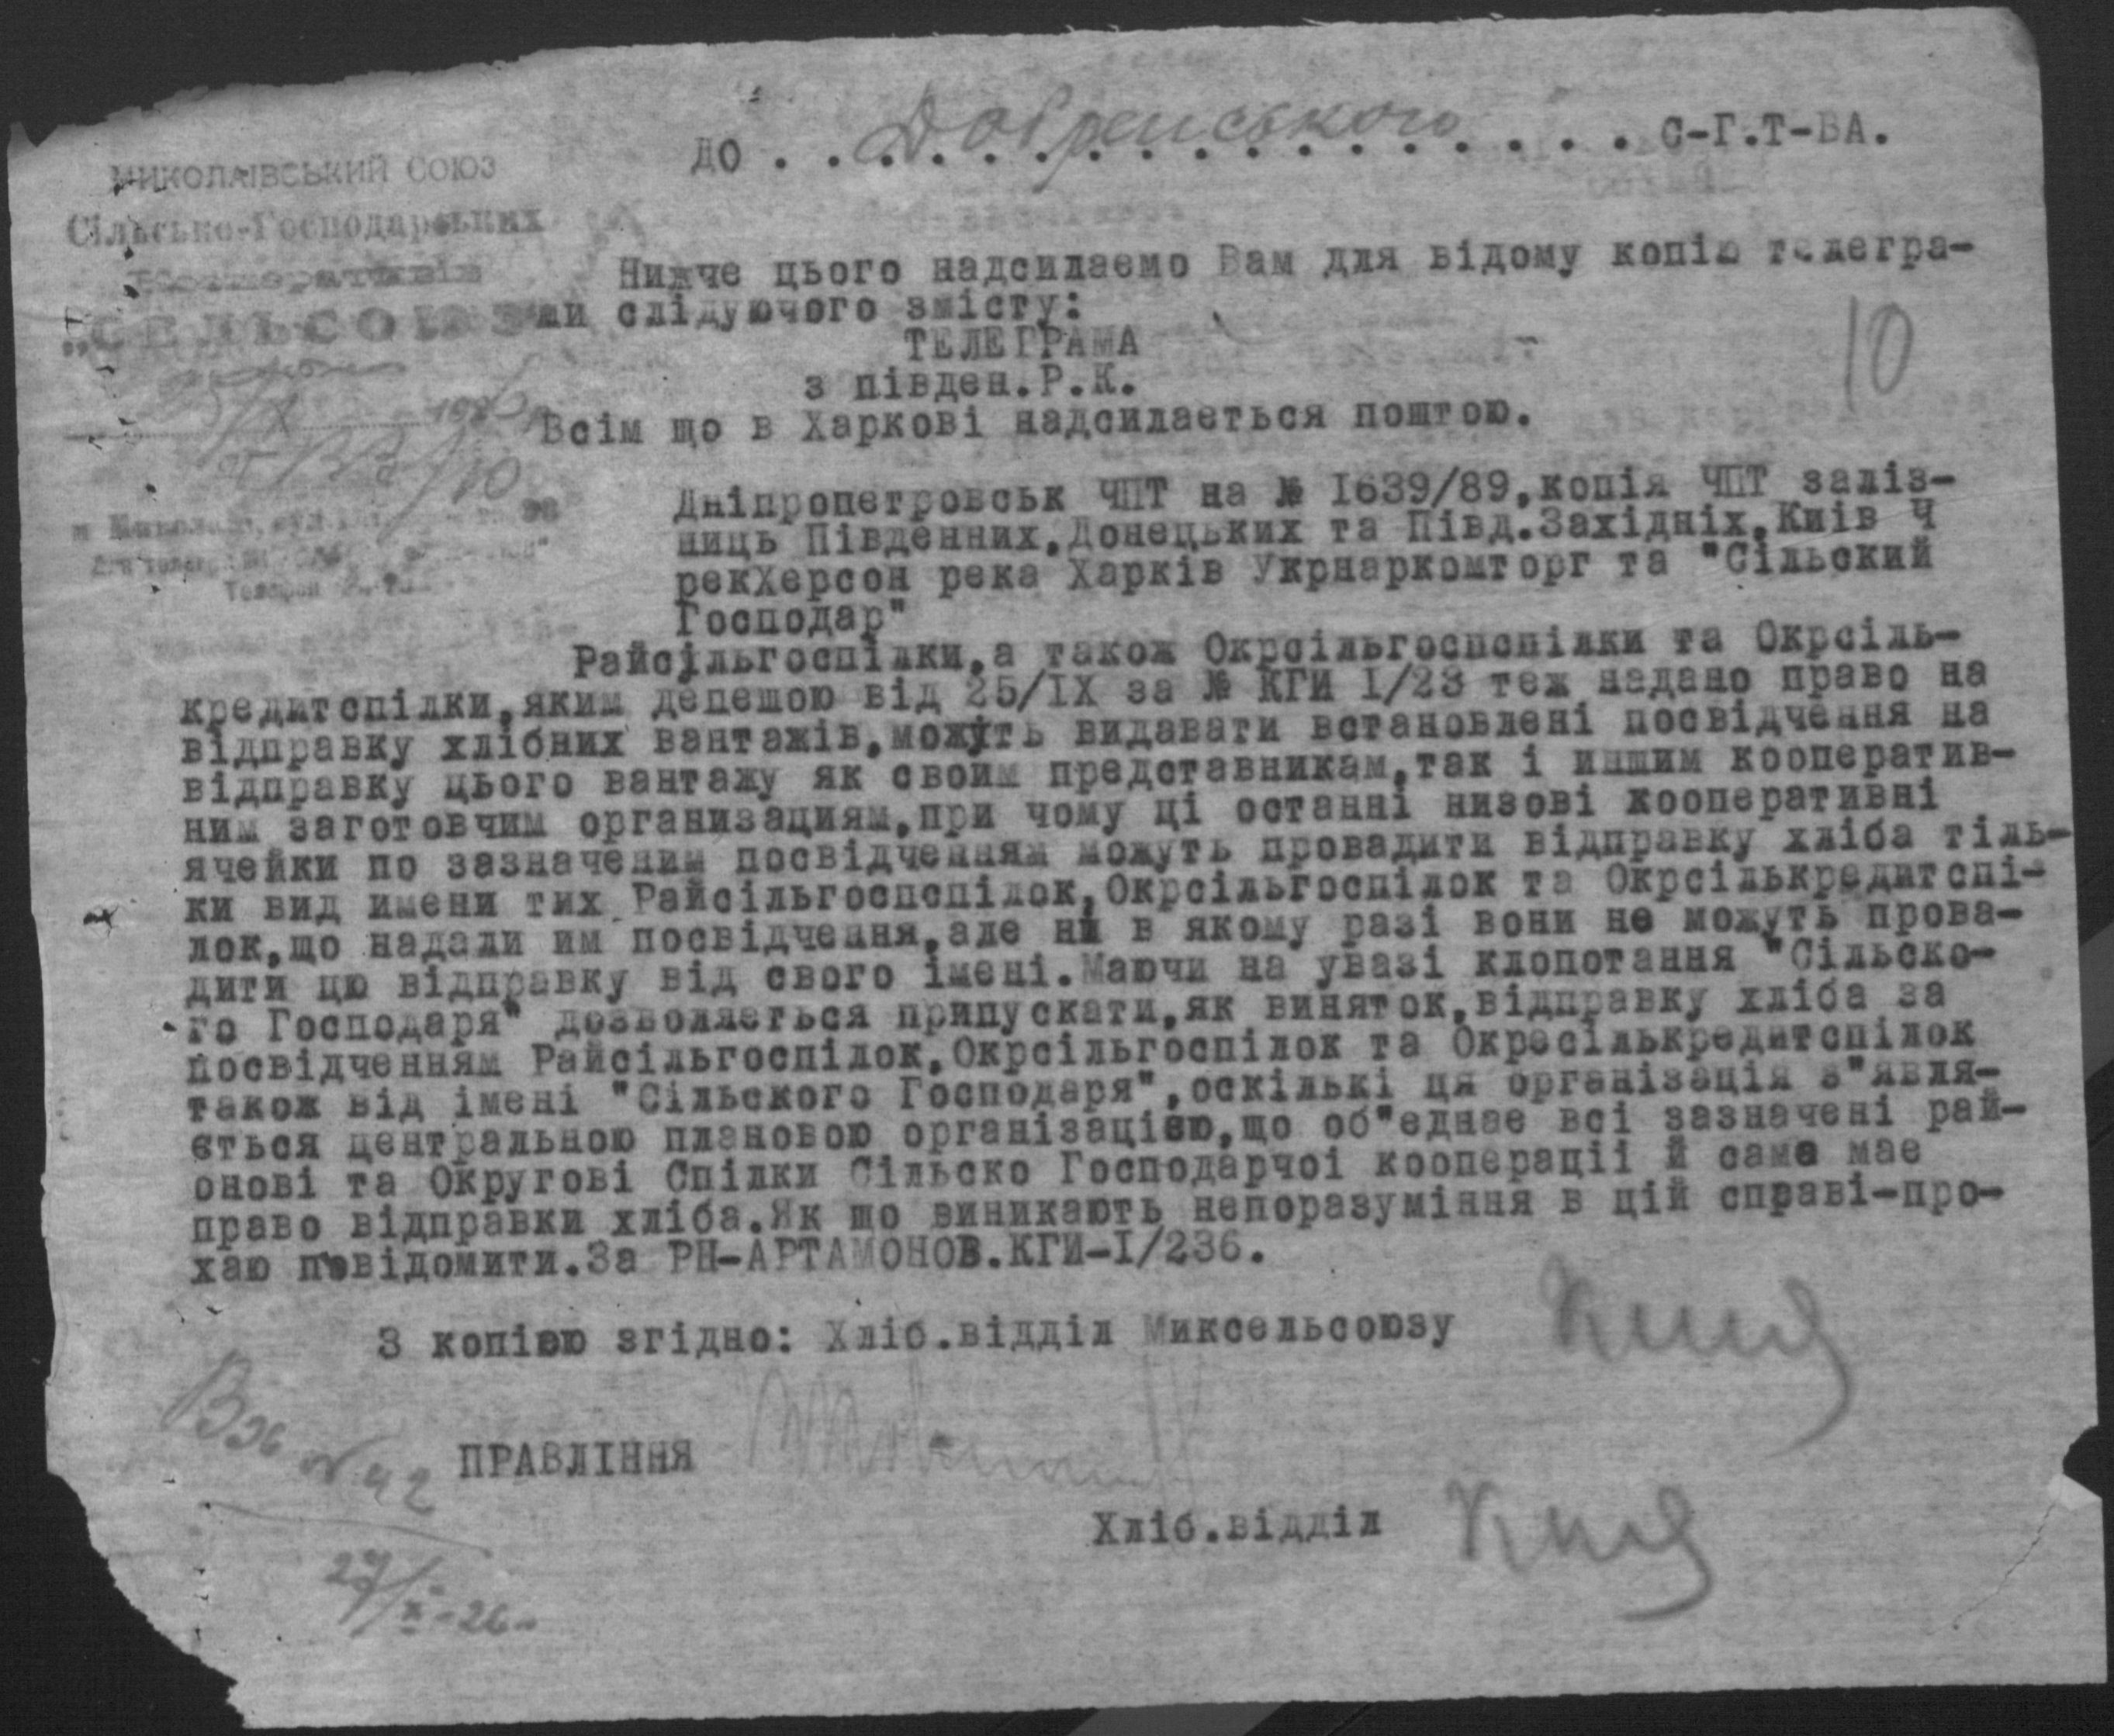 До . . Добренського . . . . С-Г.Т-ВА.
МИКОЛАІВСЬКИЙ СОЮЗ
Сільсько-Господарських
Кооперативів
„СЕЛЬСОЮЗ"
м Миколаїв, вул
Телефон
10
Нижче цього надсилаємо Вам для відому копію телегра-
ми слідуючого змісту:
ТЕЛЕГРАМА
з півден.Р.К.
Всім що в Харкові надсилається поштою.
Дніпропетровськ ЧПТ на № І639/89,копія ЧПТ заліз-
ниць Південних,Донецьких та Півд.Західніх,Киів Ч
рекХерсон река Харків Укрнаркомторг та "Сільский
Господар"
Райсільгоспілки,а також Окрсільгоспспілки та Окрсіль-
кредитспілки,яким депешою від 25/ІХ за № КГИ І/23 теж надано право на
відправку хлібних вантажів,можуть видавати встановлені посвідчення на
відправку цього вантажу як своим представникам,так і иншим кооператив-
ним заготовчим организациям,при чому ці останні низові кооперативні
ячейки по зазначеним посвідченням можуть провадити відправку хліба тіль-
ки вид имени тих Райсільгоспспілок,Окрсільгоспілок та Окрсількредитспі-
лок,що надали им посвідчення,але ні в якому разі вони не можуть прова-
дити цю відправку від свого імені.Маючи на увазі клопотання "Сільско-
го Господаря" дозволяється припускати,як виняток,відправку хліба за
посвідченням Райсільгоспілок,Окрсільгоспілок та Окресількредитспілок
також від імені "Сільского Господаря",оскількі ця організація з"явля-
ється центральною плановою організацією,що об"еднае всі зазначені рай-
онові та Округові Спілки Сільско Господарчоі кооперації й сама мае
право відправки хліба.Як що виникають непоразуміння в цій справі-про-
хаю повідомити.За РН-АРТАМОНОВ.КГИ-І/236.
З копією згідно: Хліб.відділ Миксельсоюзу
Вхь №42
ПРАВЛІННЯ
Хліб.відділ
27/X-26